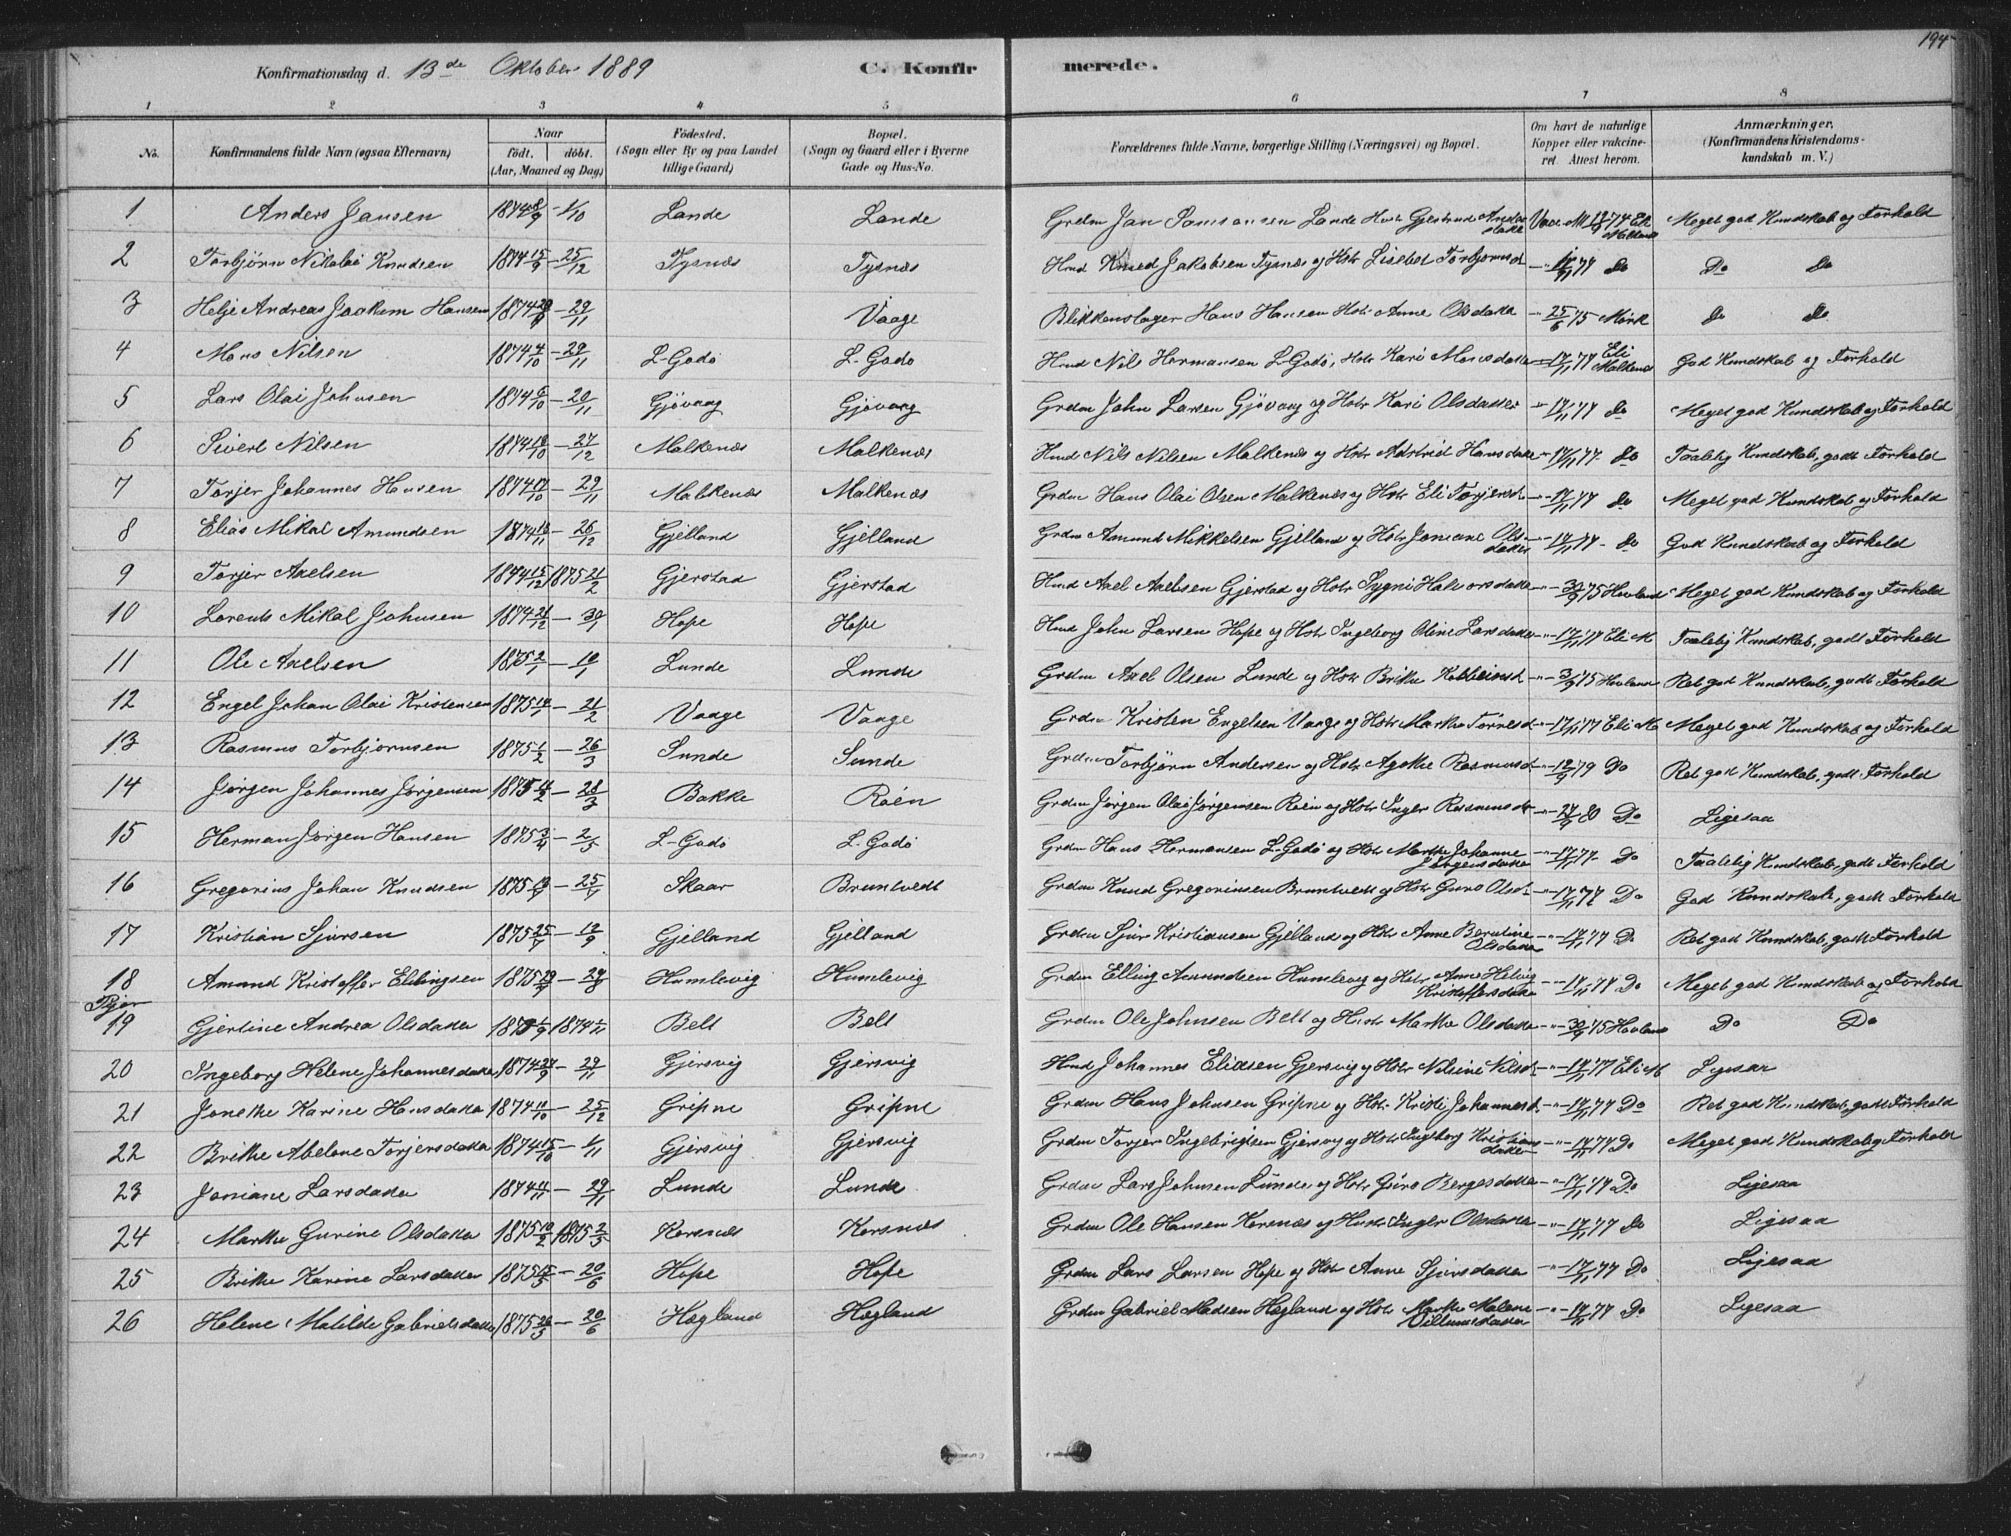 194
Konfirmationsdag d. 13de Oktober 1889 C. Konfir merede.
1 2 3 4 5 6 7 8
No. Konfirmandens fulde Navn (ogsaa Efternavn) Naar født. døbt. (Aar, Maaned og Dag) Fødested. (Sogn eller By og paa Landet tillige Gaard) Bopæl. (Sogn og Gaard eller i Byerne Gade og Hus-No. Forældrenes fulde Navne, borgerlige Stilling (Næringsvei) og Bopæl. Om havt de naturlige Kopper eller vakcineret. Attest herom. Anmærkninger. (Konfirmandens Kristendomskundskab m. V.)
1 Anders Jansen 1874 8/9 - 1/10 Lande Lande Grdm Jan Samsonsen Lande Hstr Gjertrud Andersdatter Vacc. Meget god Kundskab og Forhold
2 Torbjørn Nikolai Knudsen 1874 15/9 - 25/12 Tysnæs Tysnæs Hmd Knud Jakobsen Tysnæs og Hstr Lisebet Torbjørnsd - 77 Do Do Do
3 Helje Andreas Joakim Hansen 1874 - 29/11 Vaage Blikkenslager Hans Hansen Hstr Anne Olsdatter - 25/6 75 Mørk Do Do
4 Mons Nilsen 1874 4/10 - 29/11 L-Godø L-Godø Hmd Nils Hermansen L-Godø, Hstr Kari Monsdatter - 17/11 77 Eli Malkenæs God Kundskab og Forhold
5 Lars Olai Johnsen 1874 6/10 - 20/11 Gjøvaag Gjøvaag Grdm John Larsen Gjøvaag og Hstr Kari Olsdatter - 17/11 77 Do Meget god Kundskab og Forhold
6 Sivert Nilsen 1874 - 27/12 Malkenæs Malkenæs Hmd Nils Nilsen Malkenæs og Hstr Astrid Hansdatter - 17/11 77 - Do Taalelig Kundskab, godt Forhold
7 Torjer Johannes Hansen 1874 - 29/11 Malkenæs Malkenæs Grdm Hans Olai Olsen Malkenæs og Hstr Eli Torjersd - 17/11 77 Do Meget god Kundskab og Forhold
8 Elias Mikal Amundsen 1874 - 26/12 Gjelland Gjelland Grdm Amund Mikkelsen Gjelland og Hstr Joniane Olsdatter - 17/11 77 - Do God Kundskab og Forhold
9 Torjer Axelsen 1874 15/12 1875 21/2 Gjerstad Gjerstad Hmd Axel Axelsen Gjerstad og Hstr Sygni Halvorsdatter - 30/9 75 Hovland Meget god Kundskab og Forhold
10 Lorents Mikal Johnsen 1874 21/12 - 30/1 Hope Hope Hmd John Larsen Hope og Hstr Ingeborg Oline Larsdatter - 17/11 77 Eli M Taalelig Kundskab, godt Forhold
11 Ole Axelsen 1875 2/1 - 10/1 Lunde Lunde Grdm Axel Olsen Lunde og Hstr Brithe - 75 Hovland Ret god Kundskab, godt Forhold
12 Engel Johan Olai Kristensen 1875 - 21/2 Vaage Vaage Grdm Kristen Engelsen Vaage og Hstr Martha Torresd - 17/11 77 Eli M Meget god Kundskab og Forhold
13 Rasmus Torbjørnsen 1875 1/2 - 26/3 Sunde Sunde Grdm Torbjørn Andersen og Hstr Agathe Rasmusd - 79 Do Ret god Kundskab, godt Forhold
14 Jørgen Johannes Jørgensen 1875 - 28/3 Bakke Røen Grdm Jørgen Olai Jørgensen Røen og Hstr Inger Rasmusdr - 80 Do Ligesaa
15 Herman Jørgen Hansen 1875 3/4 - 2/5 L-Godø L-Godø Grdm Hans Hermansen L-Godø og Hstr Marthe Johanne Jørgensdatter - 17/11 77 - Do Taalelig Kundskab, godt Forhold
16 Gregorius Johan Knudsen 1875 - 25/7 Skaar Bruntvedt Grdm Knud Gregoriussen Bruntvedt og Hstr Guro Olsd - 17/11 77 Do God Kundskab, godt Forhold
17 Kristian Sjursen 1875 25/7 - 12/9 Gjelland Gjelland Grdm Sjur Kristiansen Gjelland og Hstr Anne Berntine Olsdatter - 17/11 77 Do Ret god Kundskab, godt Forhold
18 Amund Kristoffer Ellingsen 1875 - 29/8 Humlevig Humlevig Grdm Elling Amundsen Humlevig og Hstr Anne Helvig Kristoffersdatter - 17/11 77 Do Meget god Kundskab og Forhold
Piger
19 Gjertine Andrea Olsdatter 1874 Belt Belt Grdm Ole Johnsen Belt og Hstr Marthe Olsdatter - 30/9 75 Hovland Do Do
20 Ingeborg Helene Johannesdatter 1874 27/9 - 29/11 Gjersvig Gjersvig Hmd Johannes Eliassen Gjersvig og Hstr Nilsine Nilsd - 17/11 77 Eli M Ligesaa
21 Jonethe Karine Hansdatter 1874 11/10 - 25/12 Gripne Gripne Grdm Hans Johnsen Gripne og Hstr Kristi Johannesd - 17/11 77 Do Ret god Kundskab, godt Forhold
22 Brithe Abelone Torjersdatter 1874 15/10 - 1/11 Gjersvig Gjersvig Grdm Torjer Ingebrigtsen Gjersvig og Hstr Ingeborg Kristiansdatter - 17/11 77 Do Meget god Kundskab og Forhold
23 Joniane Larsdatter 1874 11/11 - 29/11 Lunde Lunde Grdm Lars Johnsen Lunde og Hstr Guro Bergesdatter - 17/11 77 Do Ligesaa
24 Marthe Gurine Olsdatter 1875 10/2 1875 2/5 Korsnæs Korsnæs Grdm Ole Hansen Korsnæs og Hustr Inger Olsdatter - 17/11 77 Do Ligesaa
25 Brithe Karine Larsdatter 1875 - 20/6 Hope Hope Grdm Lars Larsen Hope og Hstr Anne Sjursdatter - 17/11 77 Do Ligesaa
26 Helene Matilde Gabrielsdatter 1875 26/3 - 20/6 Hægland Hægland Grdm Gabriel Madsen Hægland og Hstr Marthe Malene Villumsdatter - 17/11 77 Do Ligesaa